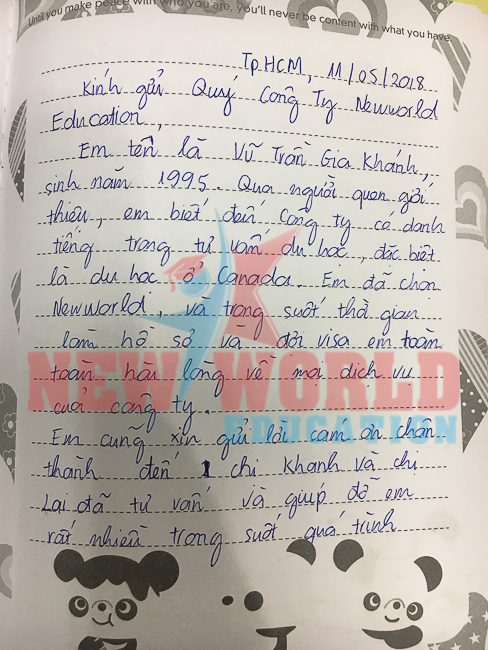 Until you make peace with who you are, you'll never be content with what you have
Tp.HCM, 11/05/2018
Kính gửi Quý Công Ty Newworld
Education,
Em tên là Vũ Trần Gia Khánh,
sinh năm 1995. Qua người quen giới
thiệu, em biết đến công ty có danh
tiếng trong tư vấn du học, đặc biệt
là du học ở Canada. Em đã chọn
Newworld, và trong suốt thời gian
làm hồ sơ và đợi visa em toàn
toàn hài lòng về mọi dịch vụ
của công ty.
Em cũng xin gửi lời cảm ơn chân
thành đến chị Khanh và chị
Lại đã tư vấn và giúp đỡ em
rất nhiều trong suốt quá trình
NEW WORLD
EDUCATION